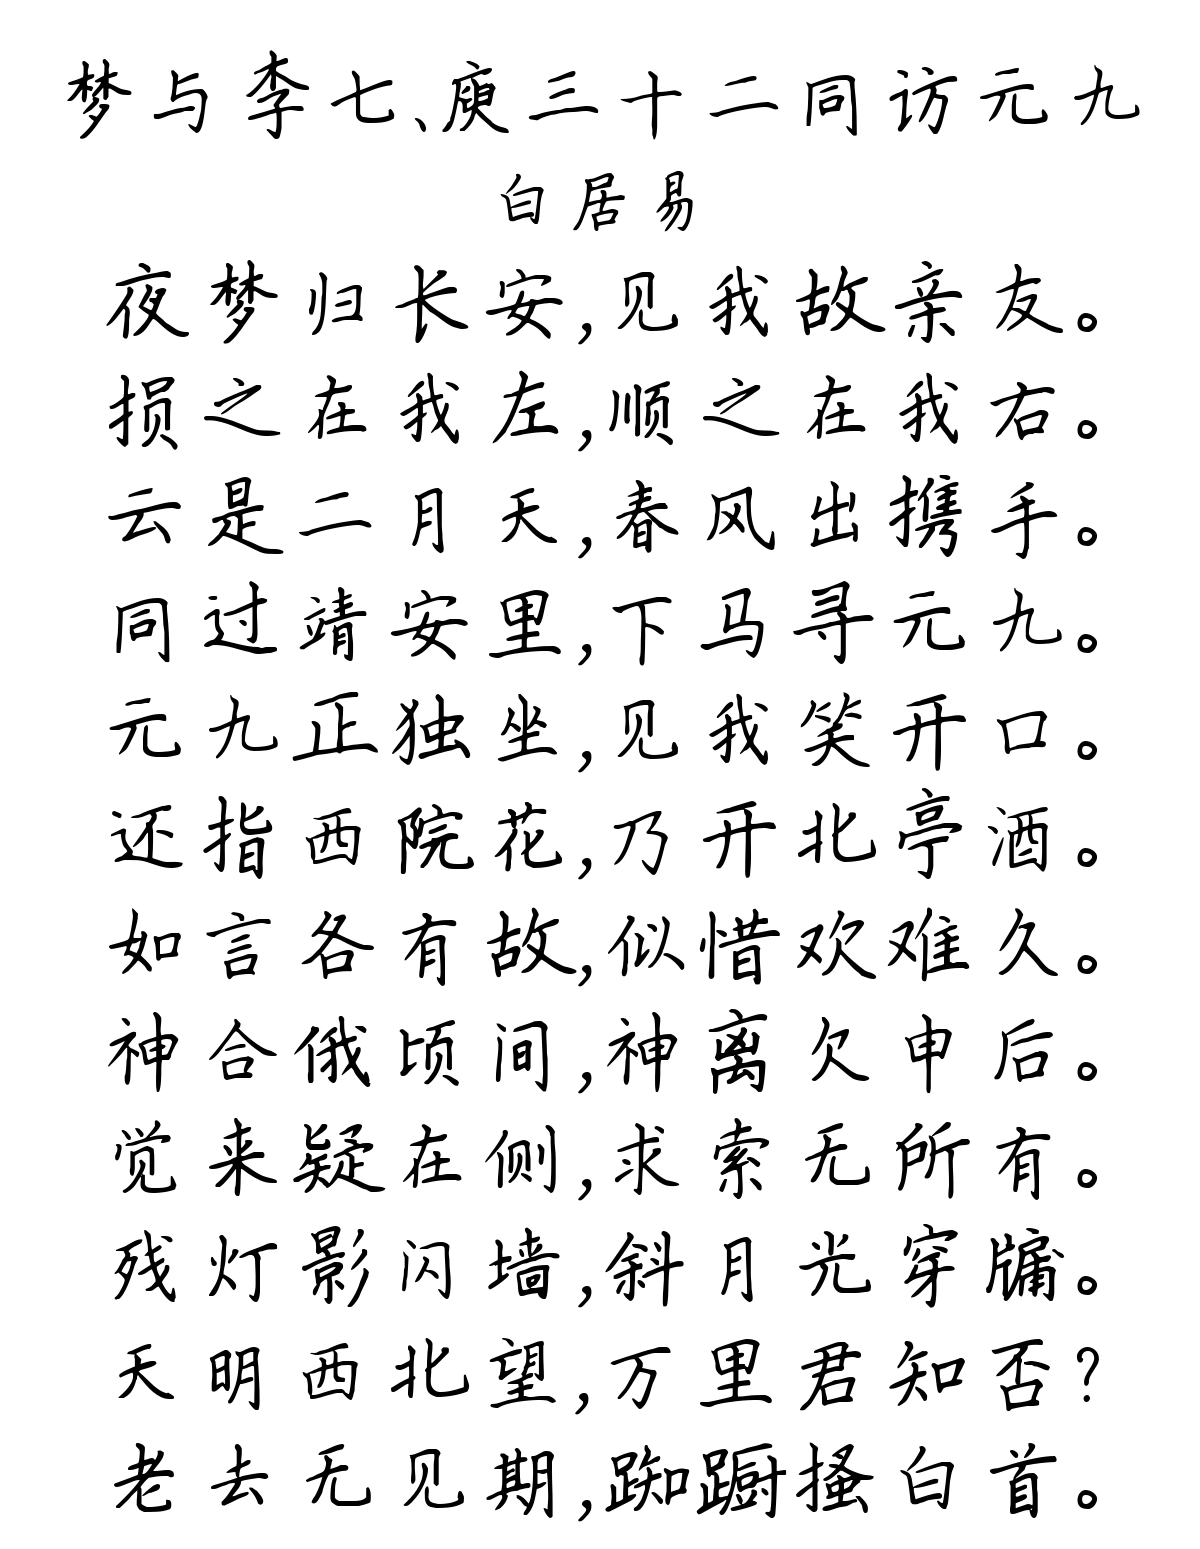 梦与李七、庾三十二同访元九
白居易
夜梦归长安,见我故亲友。
损之在我左,顺之在我右。
云是二月天,春风出携手。
同过靖安里,下马寻元九。
元九正独坐,见我笑开口。
还指西院花,乃开北亭酒。
如言各有故,似惜欢难久。
神合俄顷间,神离欠申后。
觉来疑在侧,求索无所有。
残灯影闪墙,斜月光穿牖。
天明西北望,万里君知否?
老去无见期,踟蹰搔白首。